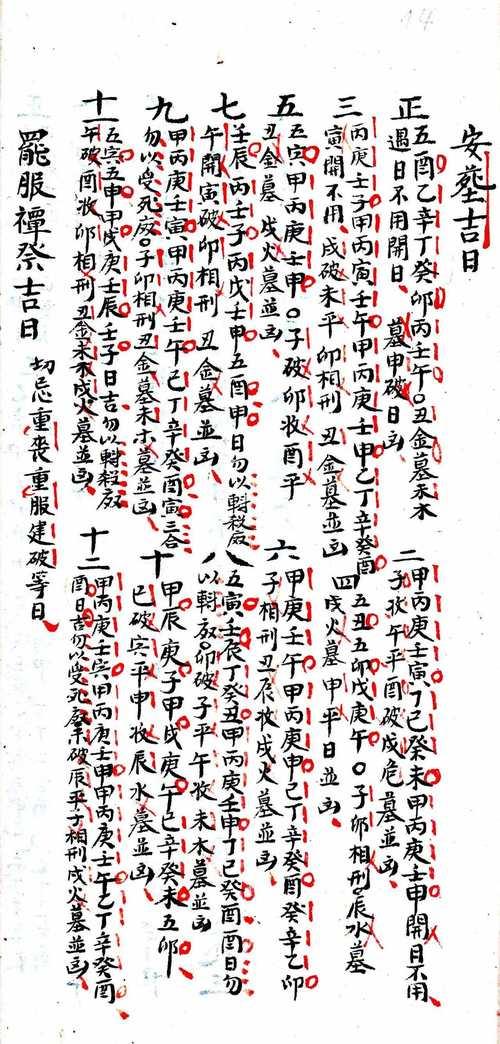 14
安葬吉日
正 五酉乙辛丁癸卯丙壬午〇丑金墓未木
遇日不用開日、墓申破日凶、
二 甲丙庚壬寅、丁己癸未甲丙庚壬申開日不用
子收午平酉破戌危墓並凶、
三 丙庚壬子甲丙寅壬午甲丙庚壬申乙丁辛癸酉
寅開不用、戌破未平卯相刑丑金墓並凶
四 五丑五卯戊庚午〇子卯相刑辰水墓
戌火墓申平日並凶、
五 五寅、甲丙庚壬申〇子破卯收酉平
丑金墓戌火墓並凶、
六 甲庚壬午甲丙庚申乙丁辛癸酉癸辛乙卯
子相刑丑辰收戌火墓並凶、
七 壬辰丙壬子丙戊壬申五酉申日勿以
午開寅破卯相刑丑金墓並凶、
八 五寅、壬辰丁癸丑甲丙庚壬申丁己癸酉酉日勿
以卯破子平午收未木墓並凶
九 甲丙庚壬寅、甲丙庚壬午乙丁辛癸酉寅三合
勿以受死廢〇子卯相刑丑金墓未木墓並凶、
十 甲辰庚子甲戌庚午乙辛癸未五卯
巳破寅平申收辰水墓並凶、
十一 五寅五申甲戌庚壬辰壬子日吉勿以
午破酉收卯相刑丑金未木戌火墓並凶、
十二 甲丙庚壬寅甲丙庚壬申甲丙庚壬午乙丁辛癸酉
酉日吉勿以受死廢未破辰平子相刑戌火墓並凶、
罷服禫祭吉日 切忌重喪重服建破等日、